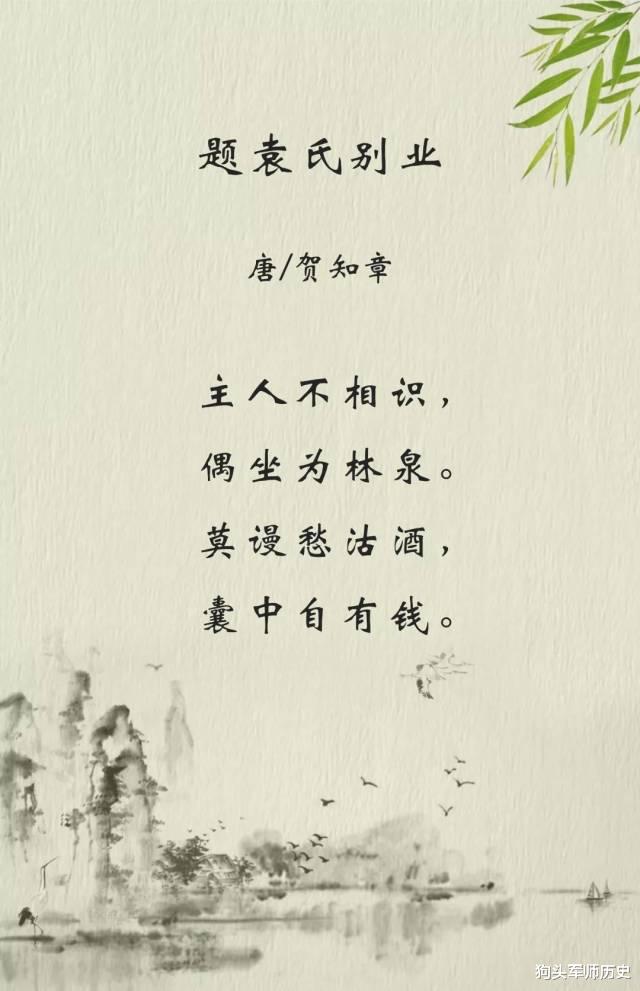 题袁氏别业
唐/贺知章
主人不相识，
偶坐为林泉。
莫谩愁沽酒，
囊中自有钱。
狗头军师历史